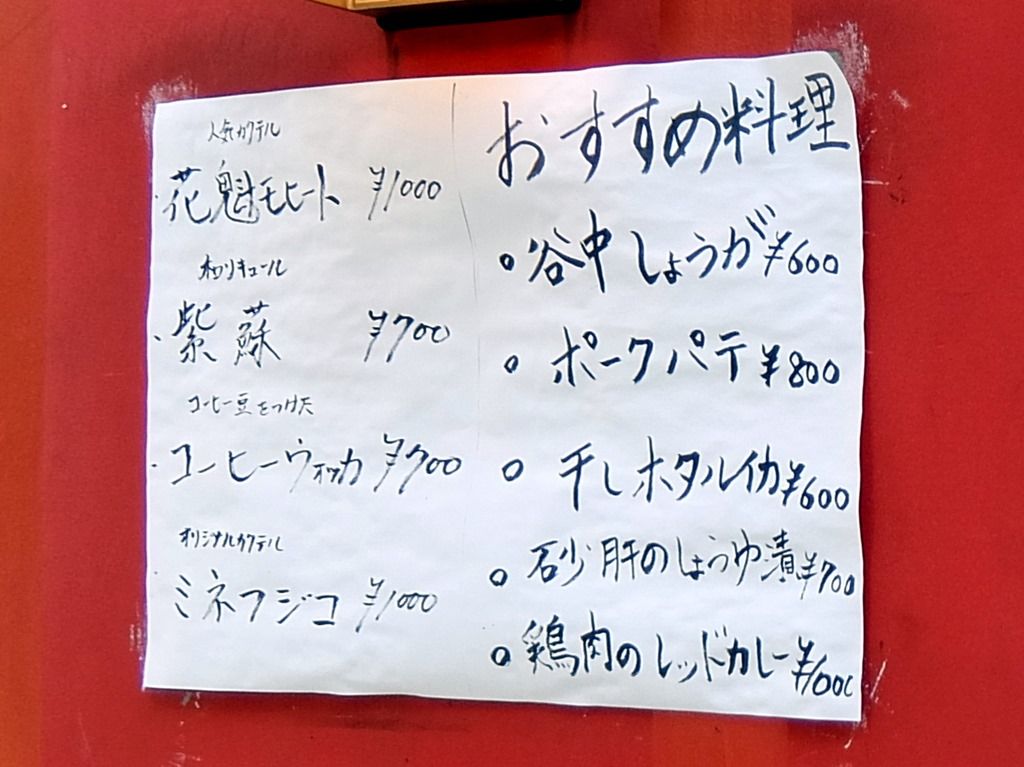 おすすめ料理
• 谷中しょうが ¥600
• ポークパテ ¥800
• 干しホタルイカ ¥600
• 砂肝のしょうゆ漬 ¥700
• 鶏肉のレッドカレー ¥1000
人気カクテル
・花魁モヒート ¥1000
和リキュール
・紫蘇 ¥700
コーヒー豆をつけた
・コーヒーウォッカ ¥700
オリジナルカクテル
ミネフジコ ¥1000